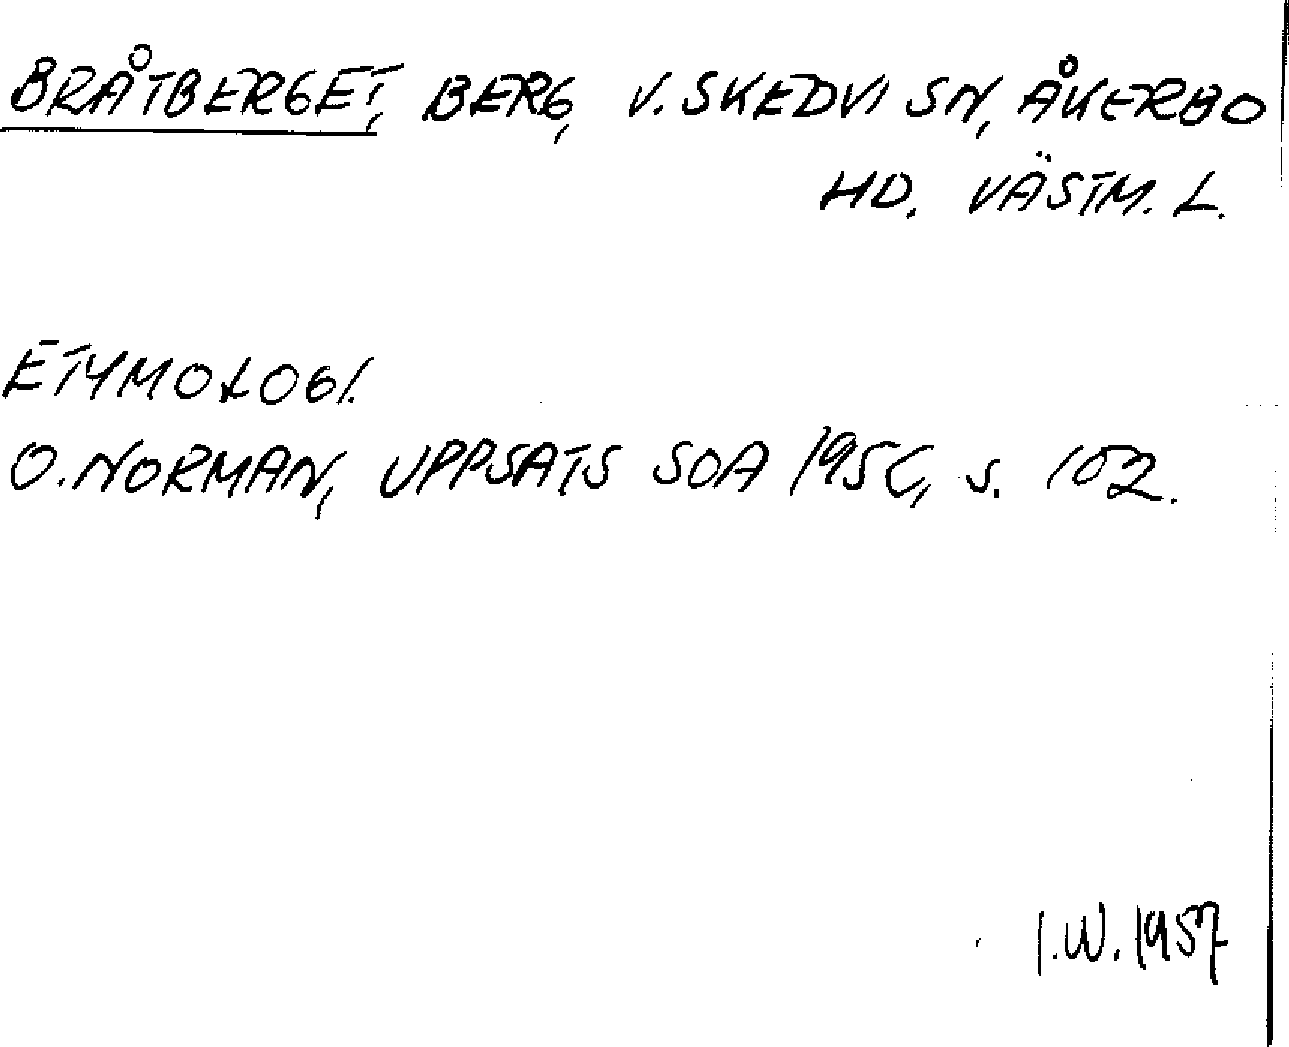 BRÅTBERGET, BERG, V. SKEDVI SN, ÅKERBO
HD. VÄSTM. L.
ETYMOLOGI.
O. NORMAN, UPPSATS SOA s. 102.
I.W. 1957